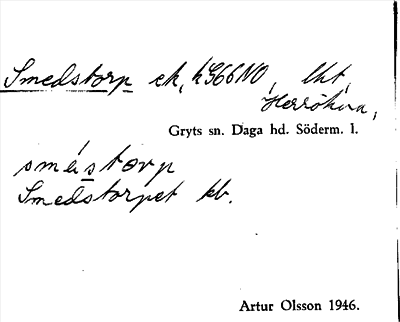 Smedstorp ek, k566NO, lht,
Herrökna,
Gryts sn. Daga hd. Söderm. l.
smestorp
Smedstorpet kb.
Artur Olsson 1946.